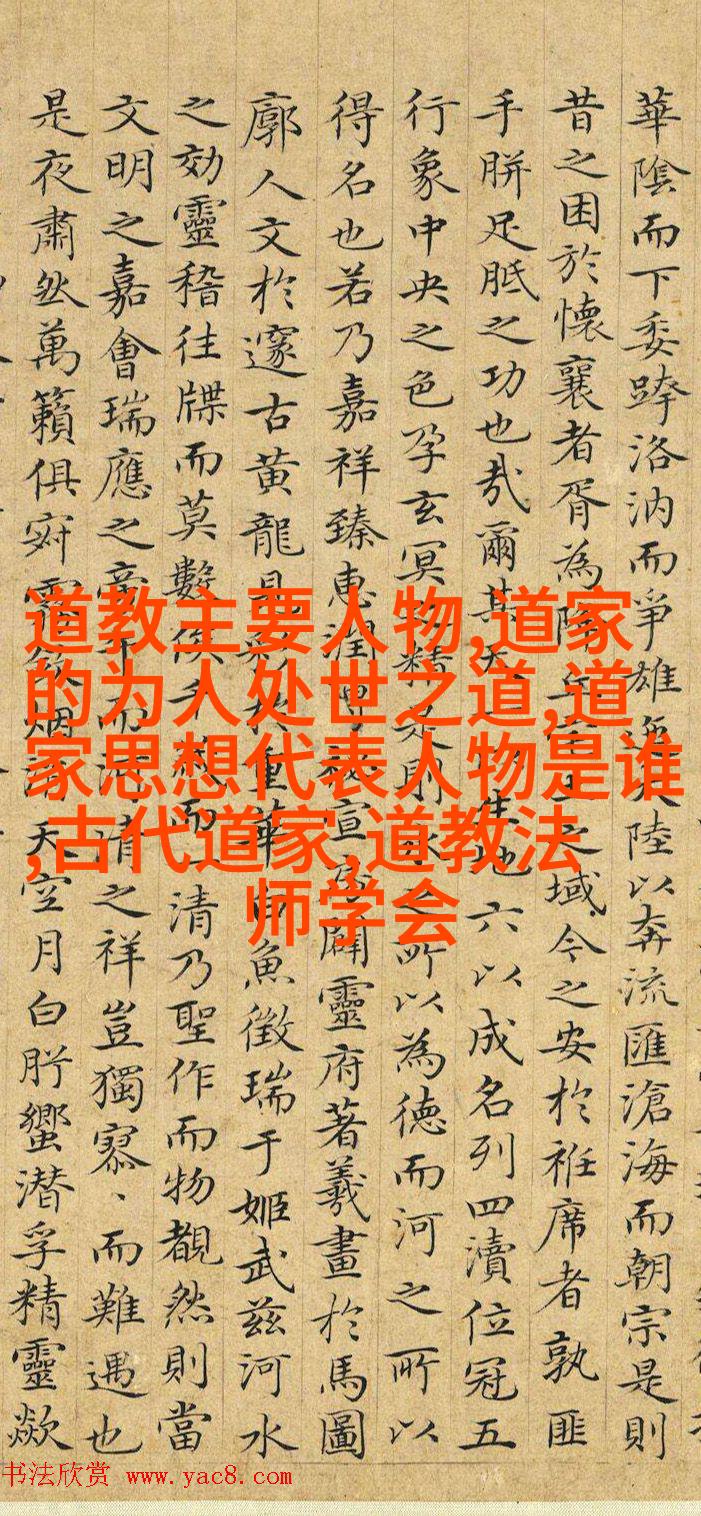 華陰而下委洛汭而爭雄大陸以奔流匯滄海而朝宗是則
昔之困於懷襄者胥為降丘之域今之安於袵席者孰匪
手胼足胝之功也哉爾其天生地六以成名列四瀆位冠五
行象中央之色孕玄冥精是則水之所以為德而河之所以
得名也若乃嘉祥臻惠潤宣闢靈府著羲畫於馬圖
廓人文於邃古黃龍見於重華白魚徵瑞于姬武茲河水
之効靈稽往牒而莫數俟千載而一清乃聖作而物覩然則當
文明之嘉會瑞應之而河清之祥豈獨寥、而難遇也
是夜肅然萬籟俱寂霧斂烟消天空月白肸蠁潜孚精靈歘
道教主要人物,道家
的为人处世之道,道
家思想代表人物是谁
,古代道家,道教法
师学会
书法欣赏 www.yac8.com